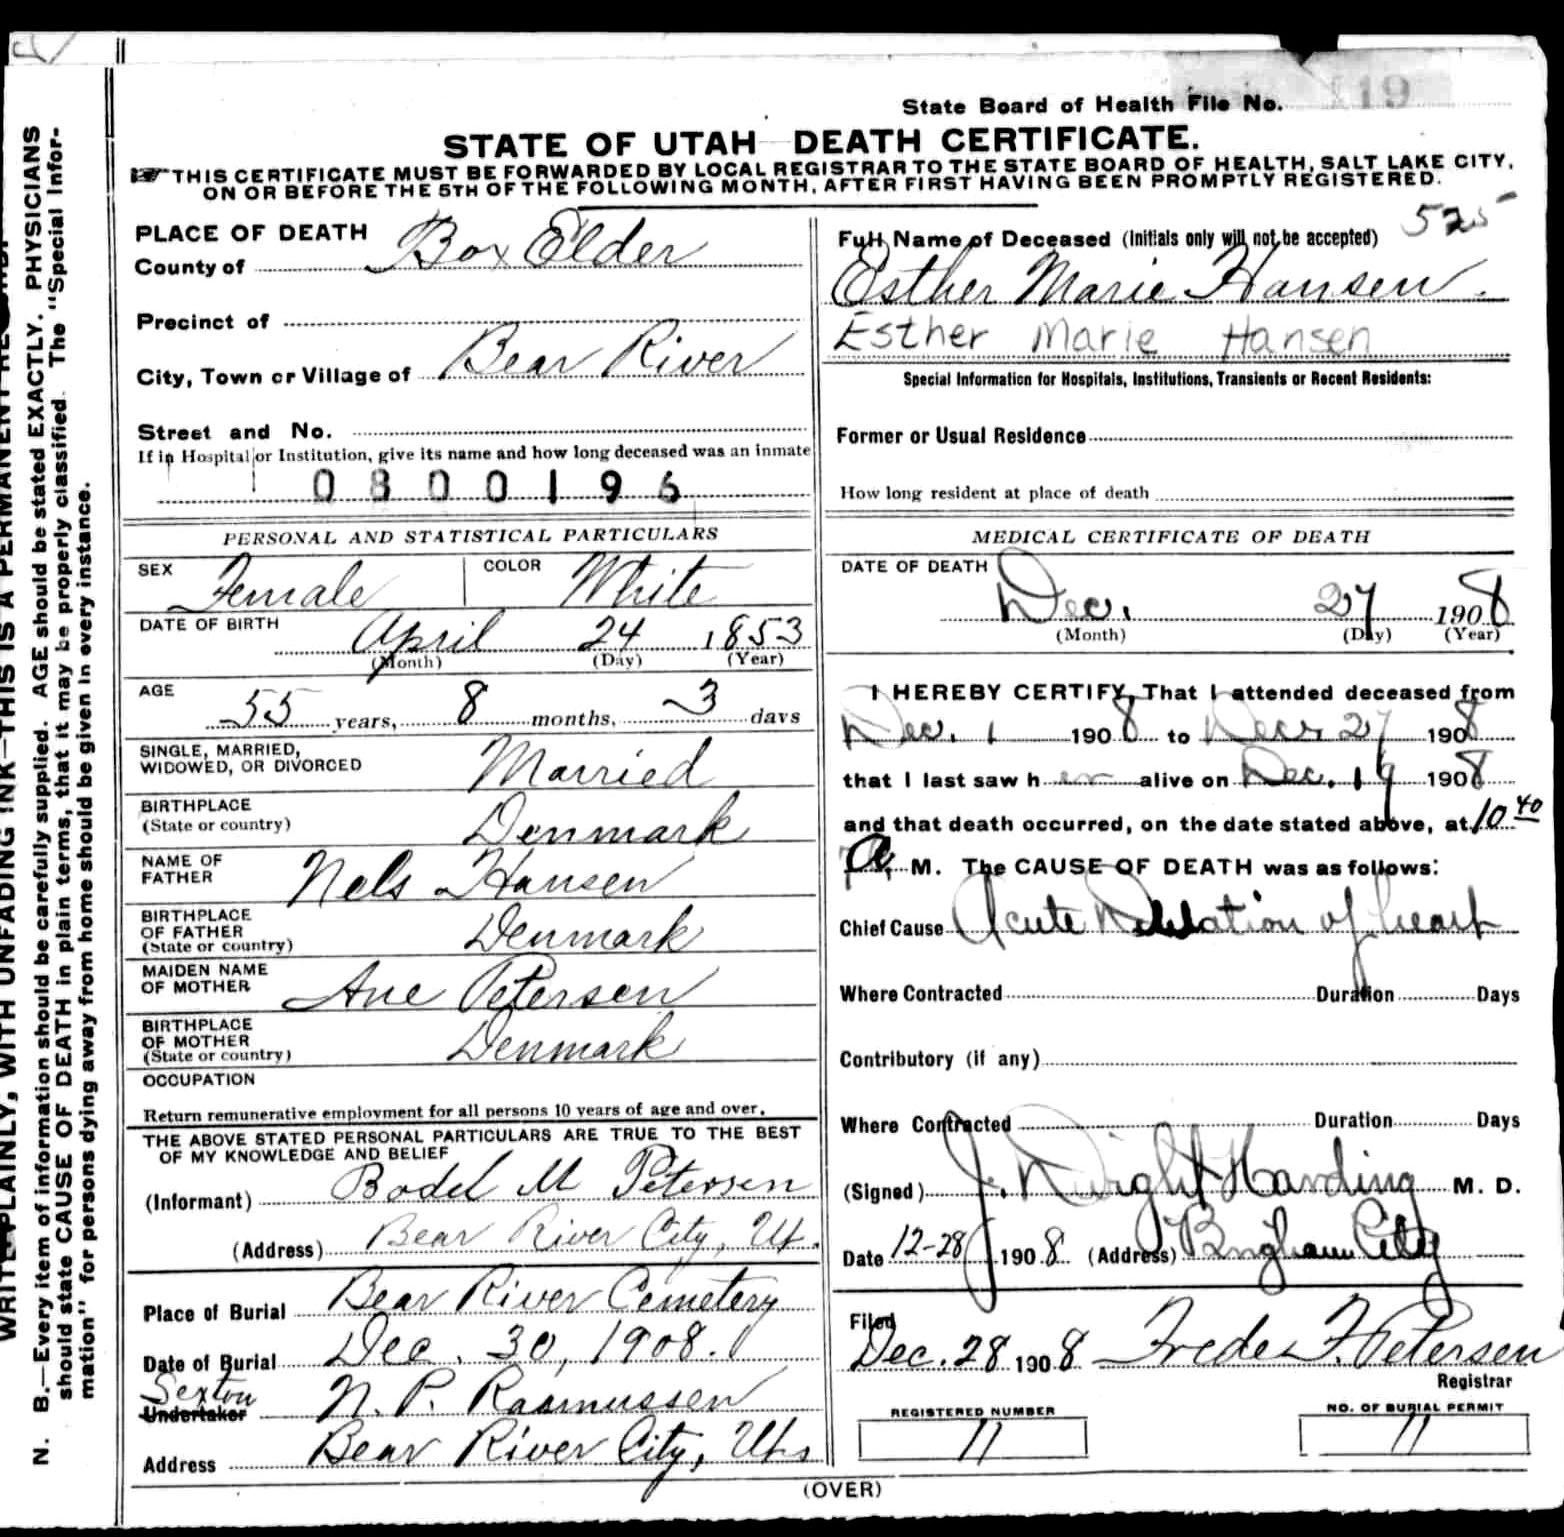 State Board of Health File No. 119
STATE OF UTAH DEATH CERTIFICATE.
THIS CERTIFICATE MUST BE FORWARDED BY LOCAL REGISTRAR TO THE STATE BOARD OF HEALTH, SALT LAKE CITY,
ON OR BEFORE THE 5TH OF THE FOLLOWING MONTH, AFTER FIRST HAVING BEEN PROMPTLY REGISTERED.
PLACE OF DEATH
County of Box Elder
Precinct of
City, Town or Village of Bear River
Street and No.
If in Hospital or Institution, give its name and how long deceased was an inmate
0800196
525
Full Name of Deceased (Initials only will not be accepted)
Esther Marie Hansen.
Esther Marie Hansen
Special Information for Hospitals, Institutions, Transients or Recent Residents:
Former or Usual Residence
How long resident at place of death
PERSONAL AND STATISTICAL PARTICULARS
SEX Female COLOR White
DATE OF BIRTH April 24 1853
(Month) (Day) (Year)
AGE 55 years, 8 months, 3 days
SINGLE, MARRIED,
WIDOWED, OR DIVORCED Married
BIRTHPLACE
(State or country) Denmark
NAME OF
FATHER Nels Hansen
BIRTHPLACE
OF FATHER
(State or country) Denmark
MAIDEN NAME
OF MOTHER Ane Petersen
BIRTHPLACE
OF MOTHER
(State or country) Denmark
OCCUPATION
Return remunerative employment for all persons 10 years of age and over.
THE ABOVE STATED PERSONAL PARTICULARS ARE TRUE TO THE BEST
OF MY KNOWLEDGE AND BELIEF
(Informant) Bodel M Petersen
(Address) Bear River City, Ut.
Place of Burial Bear River Cemetery
Date of Burial Dec. 30, 1908.
Sexton
Undertaker N. P. Rasmussen
Address Bear River City, Utah
MEDICAL CERTIFICATE OF DEATH
DATE OF DEATH
Dec. 27 1908
(Month) (Day) (Year)
I HEREBY CERTIFY, That I attended deceased from
Dec. 1 1908 to Dec. 27 1908
that I last saw her alive on Dec. 19 1908
and that death occurred, on the date stated above, at 10 40
a. M. The CAUSE OF DEATH was as follows:
Chief Cause Acute Dilation of heart
Where Contracted Duration Days
Contributory (if any)
Where Contracted Duration Days
(Signed) J. Dwight Harding M. D.
Date 12-28 1908 (Address) Brigham City
Filed
Dec. 28 1908 Frede F. Petersen
Registrar
REGISTERED NUMBER
11
NO. OF BURIAL PERMIT
11
(OVER)
WRITE PLAINLY, WITH UNFADING INK—THIS IS A PERMANENT
N. B.—Every item of information should be carefully supplied. AGE should be stated EXACTLY. PHYSICIANS
should state CAUSE OF DEATH in plain terms, that it may be properly classified. The "Special Infor-
mation" for persons dying away from home should be given in every instance.